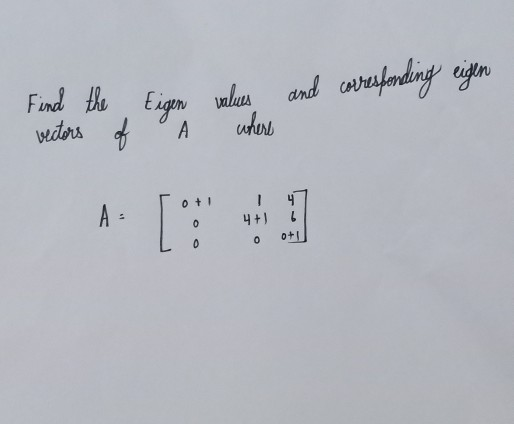 Find the Eigen values and corresponding eigen
vectors of A where
A = [ 0+1 1 4
0 4+1 6
0 0 0+1 ]